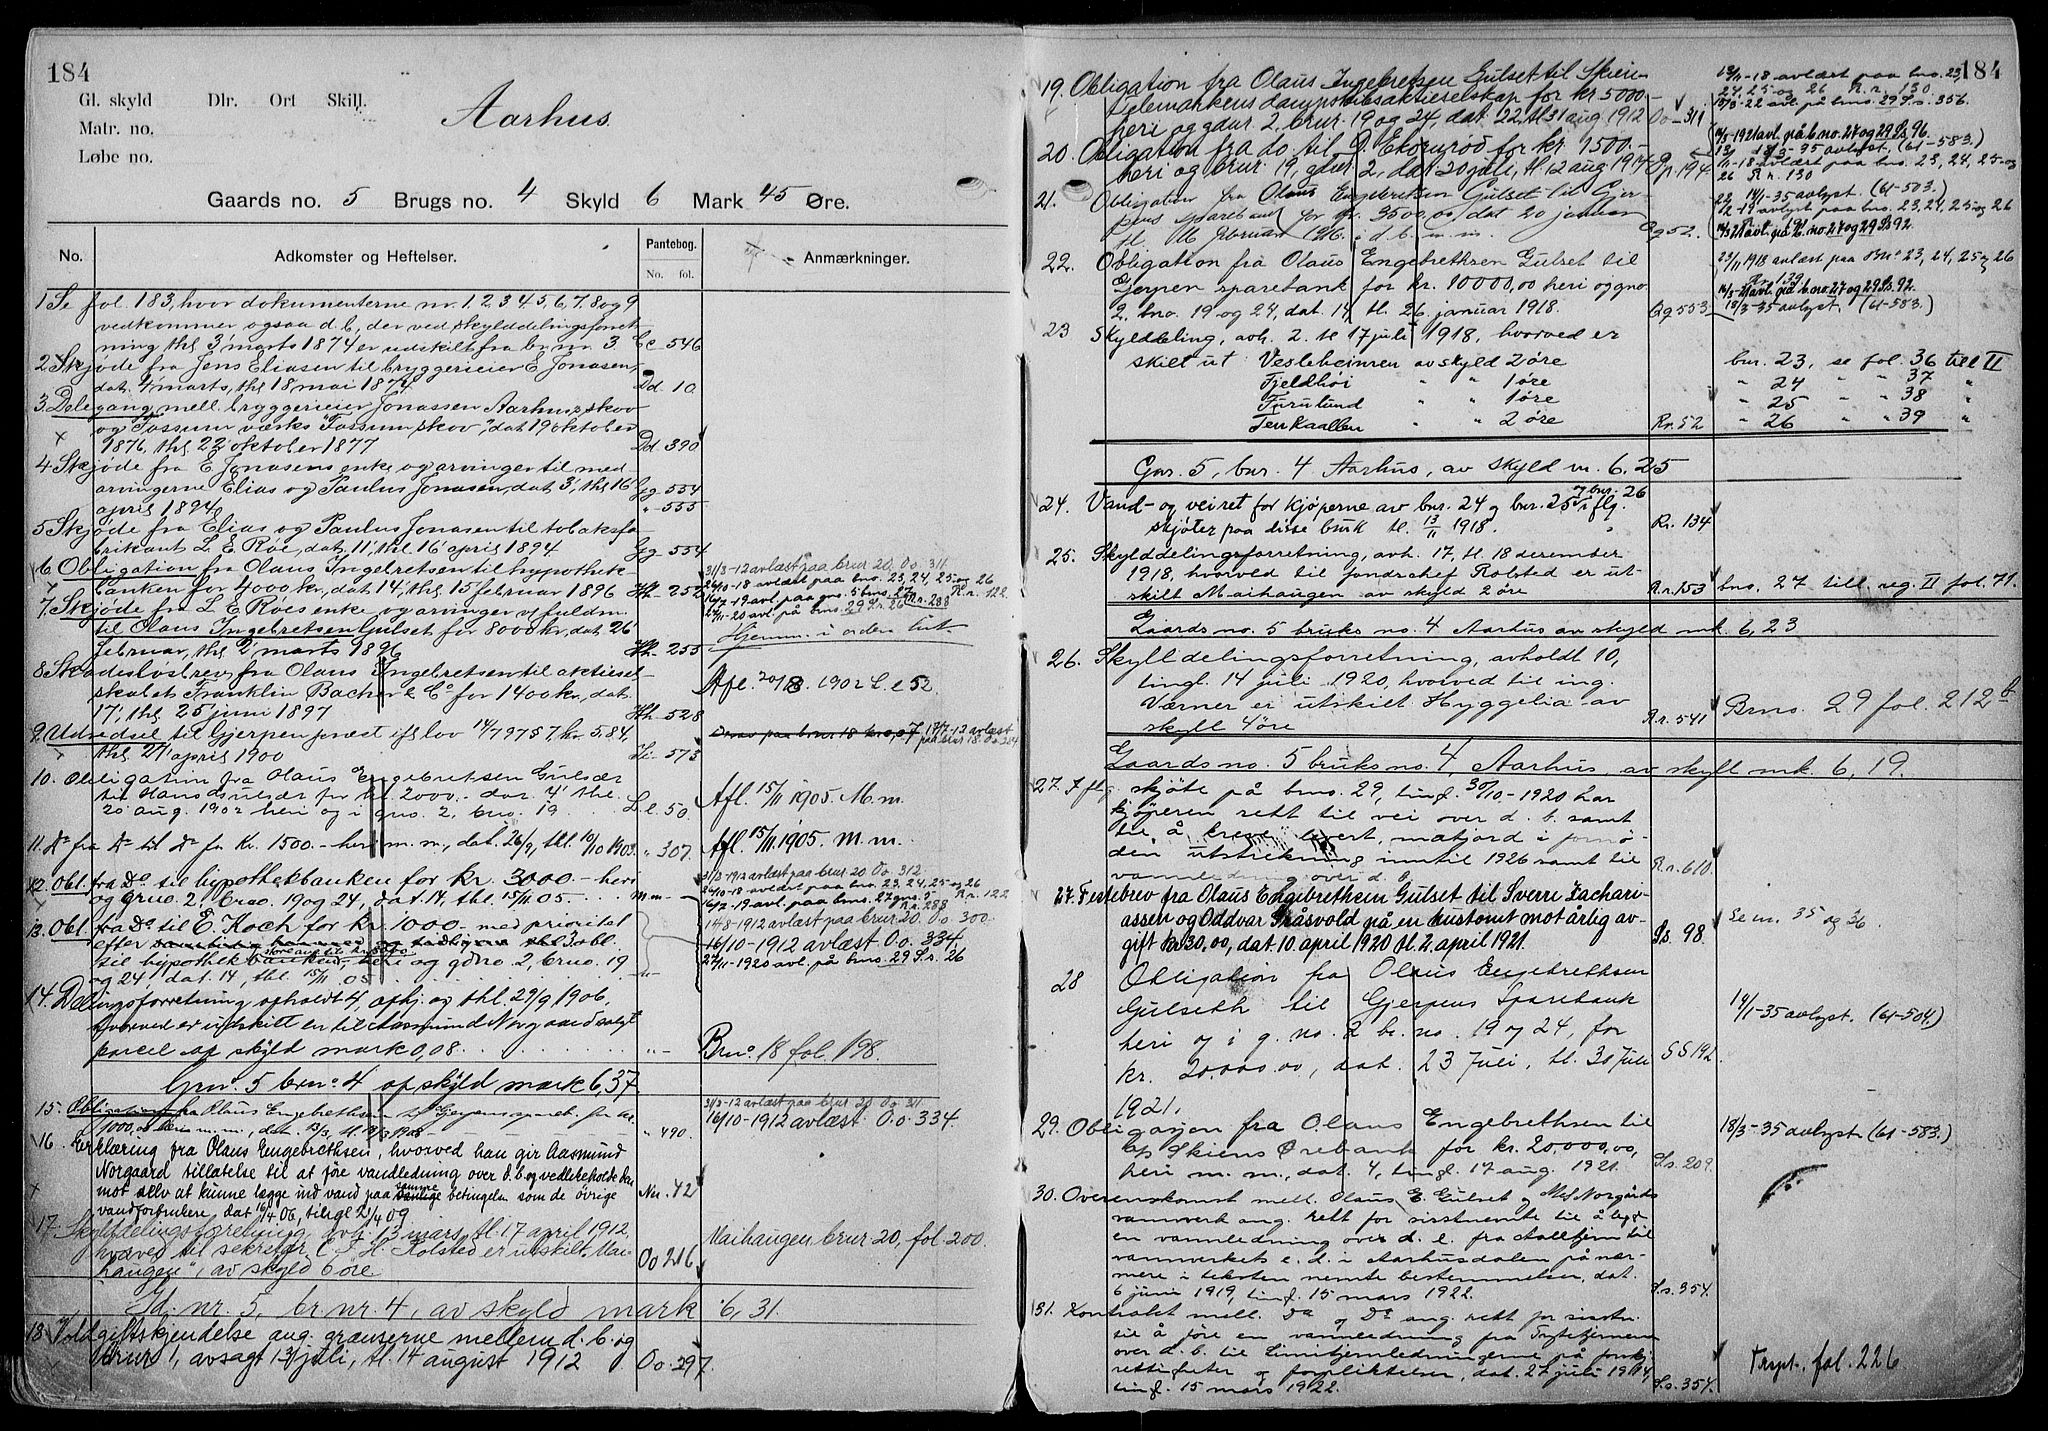 184
Gl. skyld Dlr. Ort Skill.
Matr. no.
Løbe no.
Aarhus.
Gaards no. 5 Brugs no. 4 Skyld 6 Mark 45 Øre.
No. Adkomster og Heftelser. Pantebog. No. fol. Anmærkninger.
1 Se fol. 183, hvor dokumenterne nr. 1, 2, 3, 4, 5, 6, 7, 8 og 9
vedkommer ogsaa d. b., der ved skylddelingsforret-
ning thl. 3' marts 1874 er udskilt fra br. nr. 3 Cc 546
2 Skjøde fra Jens Eliasen til bryggerieier E. Jonasen,
dat. 4' marts, thl. 18 mai 1874 Dd 10.
3. Delegang mell. bryggerieier Jonassen Aarhus skov
og Fossum værks "Fossum skov", dat. 19 oktober
1876, thl. 22' oktober 1877 Dd. 390
4 Skjøde fra E. Jonasens enke og arvinger til med-
arvingerne Elias og Paulus Jonasen, dat. 3', thl. 16' Gg 554
april 1894 " - 555
5 Skjøde fra Elias og Paulus Jonasen til tobaksfa-
brikant L. E. Røe, dat. 11', thl. 16' april 1894 Gg 554
6 Obligation fra Olaus Ingebretsen til hypothek-
banken for 4000 kr., dat. 14', thl. 15 februar 1896 Hh. 252
31/3-12 avlæst paa brur 20. Oo 311
26/10-18 avlæst paa bns. 23, 24, 25 og 26 R.r. 122
16/7-19 avl. paa gns. 5 bns. 27 R.r. 288
27/11-20 avl. på bns. 29 S.s. 26
7. Skjøde fra L. E. Røes enke og arvinger v/ fuldm.
til Olaus Ingebretsen Gulset for 8000 kr., dat. 26'
februar, thl. 2' marts 1896 Hh. 255
Hjemm. i orden
8 Skadesløsbrev fra Olaus Ingebretsen til aktiesel-
skabet Franklin Bache & Co for 1400 kr., dat.
17', thl. 25' juni 1897 Hh. 528
Afl. 20/8. 1902 L. l 52.
9. Udredsel til Gjerpen præst ifl. lov 14/7 97 57 kr. 5,84,
thl. 27' april 1900 Ii. 573
Derav paa brur 18 kr. 0,07 17/7-12 avlæst
paa brur 18 Oo 284
10. Obligation fra Olaus Engebretsen Gulsær
til Hans Gulsær for kr. 2000.- dat. 4' thl.
20' aug. 1902 heri og i gno. 2, bno. 19 L. l. 50.
Afl. 15/11 1905. M. m.
11. Do fra Do til Do for Kr. 1500.- heri m. m., dat. 26/9, thl. 10/10 1903. " 307.
Afl. 15/11 1905. M. m.
12. Obl. fra Do til hypothekbanken for kr. 3000.- heri
og gno. 2, bno. 19 og 24, dat. 14, thl. 15/11. 05. m m -
31/3-1912 avlæst paa brur 20 Oo 312
26/10-18 avlæst paa bns. 23, 24, 25 og 26 R.r. 122
16/7-19 avl. paa bns. 27 gns. 5 R.r. 288
13. Obl. fra Do til E. Koch for kr. 1000.- med prioritet
efter 3 obl.
til hypothekbanken, heri og gdno 2, bno. 19
og 24, dat. 14, thl. 15/11. 05. " -
14/8-1912 avlæst paa brur 20. Oo 300.
16/10-1912 avlæst O.o. 334.
27/11-1920 avl. på bns. 29 S.s. 26
14. Delingsforretning afholdt 4, afhj. og thl. 29/9 1906,
hvorved er udskilt en til Aasmund Norgaard solgt
parcel af skyld mark 0,08. " - Brno. 18 fol. 198.
Grno. 5 brno. 4 af skyld mark 6,37.
15. Obligation fra Olaus Engebrethsen til Gjerpens spareb. for kr.
1000,00 heri m. m., dat. 13/3, tl. 18/3 1908 " 490.
31/3-12 avlæst paa brur 20 Oo 311
16/10-1912 avlæst O.o 334.
16. Erklæring fra Olaus Engebrethsen, hvorved han gir Aasmund
Norgaard tillatelse til at føre vandledning over d. b. og vedlikeholde den
mot selv at kunne lægge ind vand paa samme betingelser som de øvrige
vandforbrukere, dat 16/4 06, tilegl 21/4 09 Nn. 42
17. Skylddelingsforretning, avh. 13 mars, tl. 17 april 1912,
hvorved til sekretær C. F. H. Rolsted er utskilt "Mai-
haugen", av skyld 6 øre Oo 216 Maihaugen brur 20, fol. 200.
Gd. nr. 5, br. nr. 4, av skyld mark 6,31.
18 Voldgiftskjendelse ang. grænserne mellem d. b. og
brur 1, avsagt 13 juli, tl. 14 august 1912 Oo 297.
184
19. Obligation fra Olaus Ingebretsen Gulset til Skien-
Telemarkens dampskibsaktieselskap for kr. 5000.-
heri og gdnr. 2, brur. 19 og 24, dat. 22, tl. 31 aug. 1912 Oo - 319
12/11-18 avlæst paa bns. 23,
24, 25 og 26 R. r. 130.
13/3-22 avl. på bns. 29 S. s. 356.
20. Obligation fra do til J. Ekornrød for kr. 1500.-
heri og brur 19, gdnr 2, dat. 20 juli, tl. 12 aug. 1914 Qp. 194
14/5-1921 avl. på b. no. 27 og 29 Ss 96.
18/3-35 avlyst. (61-583.)
12/11-18 avlæst paa bns. 23, 24, 25 og
26 R.r. 130
21. Obligation fra Olaus Engebretsen Gulset til Gjer-
pens sparebank for kr. 3500,00, dat 20 januar
tl. 16 februar 1916. i d. b. m. m. Qq 52.
14/1-35 avlyst. (61-503.)
22/2-19 avlyst paa bns. 23, 24, 25 og 26
14/3-21 avl. på b. no 27 og 29 Ss 92.
22. Obligation fra Olaus Engebrethsen Gulset til
Gjerpen sparebank for kr. 10000,00 heri og gno
2. bno. 19 og 24, dat. 14 tl. 26. januar 1918. Qq 553
23/11 1918 avlæst paa bno 23, 24, 25 og 26
R.r. 129
14/3-21 avl. på b. no 27 og 29 Ss. 92.
18/3-35 avlyst. (61-583.)
23 Skylddeling, avh. 2. tl 17 juli 1918, hvorved er
skilt ut Vesleheimen av skyld 2 øre bnr. 23, se fol. 36 till II
Fjeldhøi " " 1 øre " 24 " " 37 "
Furulund " " 1 øre " 25 " " 38 "
" " 2 øre Rr. 52 " 26 " " 39 "
Gnr. 5, bnr. 4 Aarhus, av skyld m. 6,25
24. Vand- og veiret for kjøperne av bnr. 24 og bnr. 25 og bnr. 26 iflg.
skjøter paa disse bruk tl. 13/11 1918. R.r. 134
25. Skylddelingsforretning, avh. 17, tl. 18 desember
1918, hvorved til fondschef Rolsted er ut-
skilt Maihaugen av skyld 2 øre R.r. 153 bns. 27 till. reg. II fol. 71.
Gaards no. 5 bruks no. 4 Aarhus av skyld mk. 6,23
26. Skylldelingsforretning, avholdt 10,
tingl. 14 juli 1920, hvorved til ing.
Værner er utskilt Hyggelia av
skyll 4 øre R.r. 541 Brns. 29 fol. 212 b
Gaards no. 5 bruks no. 4, Aarhus, av skyll mk. 6,19.
27. Iflg. skjøte på bns. 29, tingl. 30/10-1920 har
kjøperen rett til vei over d. b. samt
til å kreve levert, matjord i fornø-
den utstrekning inntil 1926 samt til
vannledning over d. b. R.r. 610.
27. Festebrev fra Olaus Engebrethsen Gulset til Sverre Zachari-
assen og Oddvar Gråsvold på en tustomt mot årlig av-
gift kr. 30,00, dat. 10. april 1920 tl. 2. april 1921. Ss. 98. Se nr. 35 og 36.
28 Obligation fra Olaus Engebrethsen
Gulseth til Gjerpens Sparebank
heri og i g. no. 2 br. no. 19 og 24, for
kr. 20.000.00, dat. 23 Juli, tl. 30 Juli
1921. SS 192. 14/1-35 avlyst. (61-504.)
29. Obligasjon fra Olaus Engebrethsen til
Skiens Ørebank for kr. 20,000,00,
heri m. m., dat. 4, tingl. 17 aug. 1921. S.s. 209. 18/3-35 avlyst (61-583.)
30. Overenskomst mell. Olaus E. Gulset og Norgårds
vannverk ang. rett for sisstnevnte til å legge
en vannledning over d. e. fra Aalletjern til
vannverkets e. d. i Aarhusdalen på nær-
mere i teksten nevnte bestemmelser, dat.
6 juni 1919, tingl. 15 mars 1922. S.s. 354.
31. Kontrakt mell. Do og Do ang. rett for sisstn.
til å føre en vannledning fra Frytetjernene
over d. b. til Limitjernledningerne på
rettigheter og forpliktelser, dat. 27 juli 1914,
tingl. 15 mars 1922. S.s. 354. Trspt. fol. 226